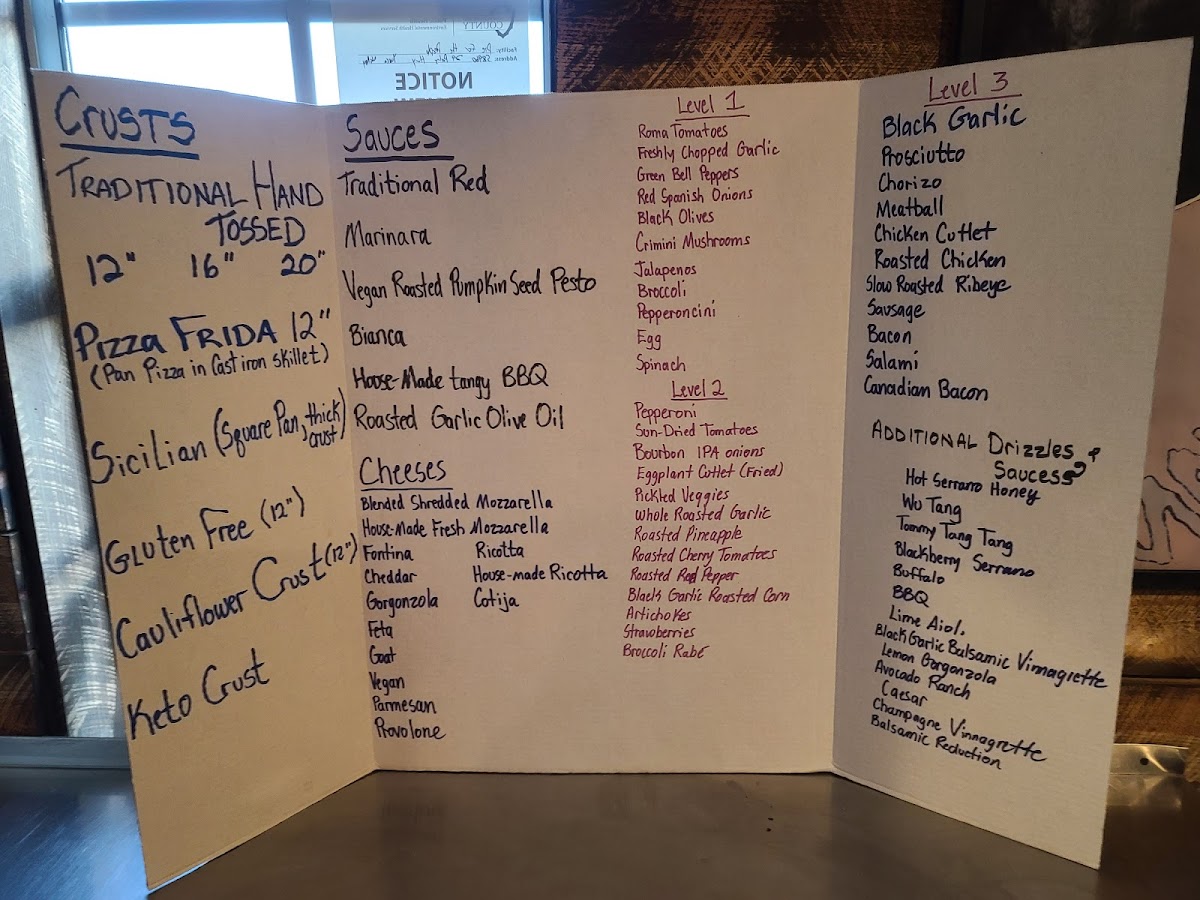 COUNTY
Environmental Health Services
Facility: Pie For The People
NOTICE
CRUSTS
TRADITIONAL HAND
TOSSED
12" 16" 20"
Pizza FRIDA 12"
(Pan Pizza in Cast iron skillet)
Sicilian (Square Pan, thick
crust)
Gluten Free (12")
Cauliflower Crust (12")
Keto Crust
Sauces
Traditional Red
Marinara
Vegan Roasted Pumpkin Seed Pesto
Bianca
House-Made tangy BBQ
Roasted Garlic Olive Oil
Cheeses
Blended Shredded Mozzarella
House-Made Fresh Mozzarella
Fontina Ricotta
Cheddar House-made Ricotta
Gorgonzola Cotija
Feta
Goat
Vegan
Parmesan
Provolone
Level 1
Roma Tomatoes
Freshly Chopped Garlic
Green Bell Peppers
Red Spanish Onions
Black Olives
Crimini Mushrooms
Jalapenos
Broccoli
Pepperoncini
Egg
Spinach
Level 2
Pepperoni
Sun-Dried Tomatoes
Bourbon IPA onions
Eggplant Cutlet (Fried)
Pickled Veggies
Whole Roasted Garlic
Roasted Pineapple
Roasted Cherry Tomatoes
Roasted Red Pepper
Black Garlic Roasted Corn
Artichokes
Strawberries
Broccoli Rabé
Level 3
Black Garlic
Prosciutto
Chorizo
Meatball
Chicken Cutlet
Roasted Chicken
Slow Roasted Ribeye
Sausage
Bacon
Salami
Canadian Bacon
ADDITIONAL Drizzles &
Sauces
Hot Serrano Honey
Wu Tang
Tommy Tang Tang
Blackberry Serrano
Buffalo
BBQ
Lime Aioli
Black Garlic Balsamic Vinnagrette
Lemon Gorgonzola
Avocado Ranch
Caesar
Champagne Vinnagrette
Balsamic Reduction